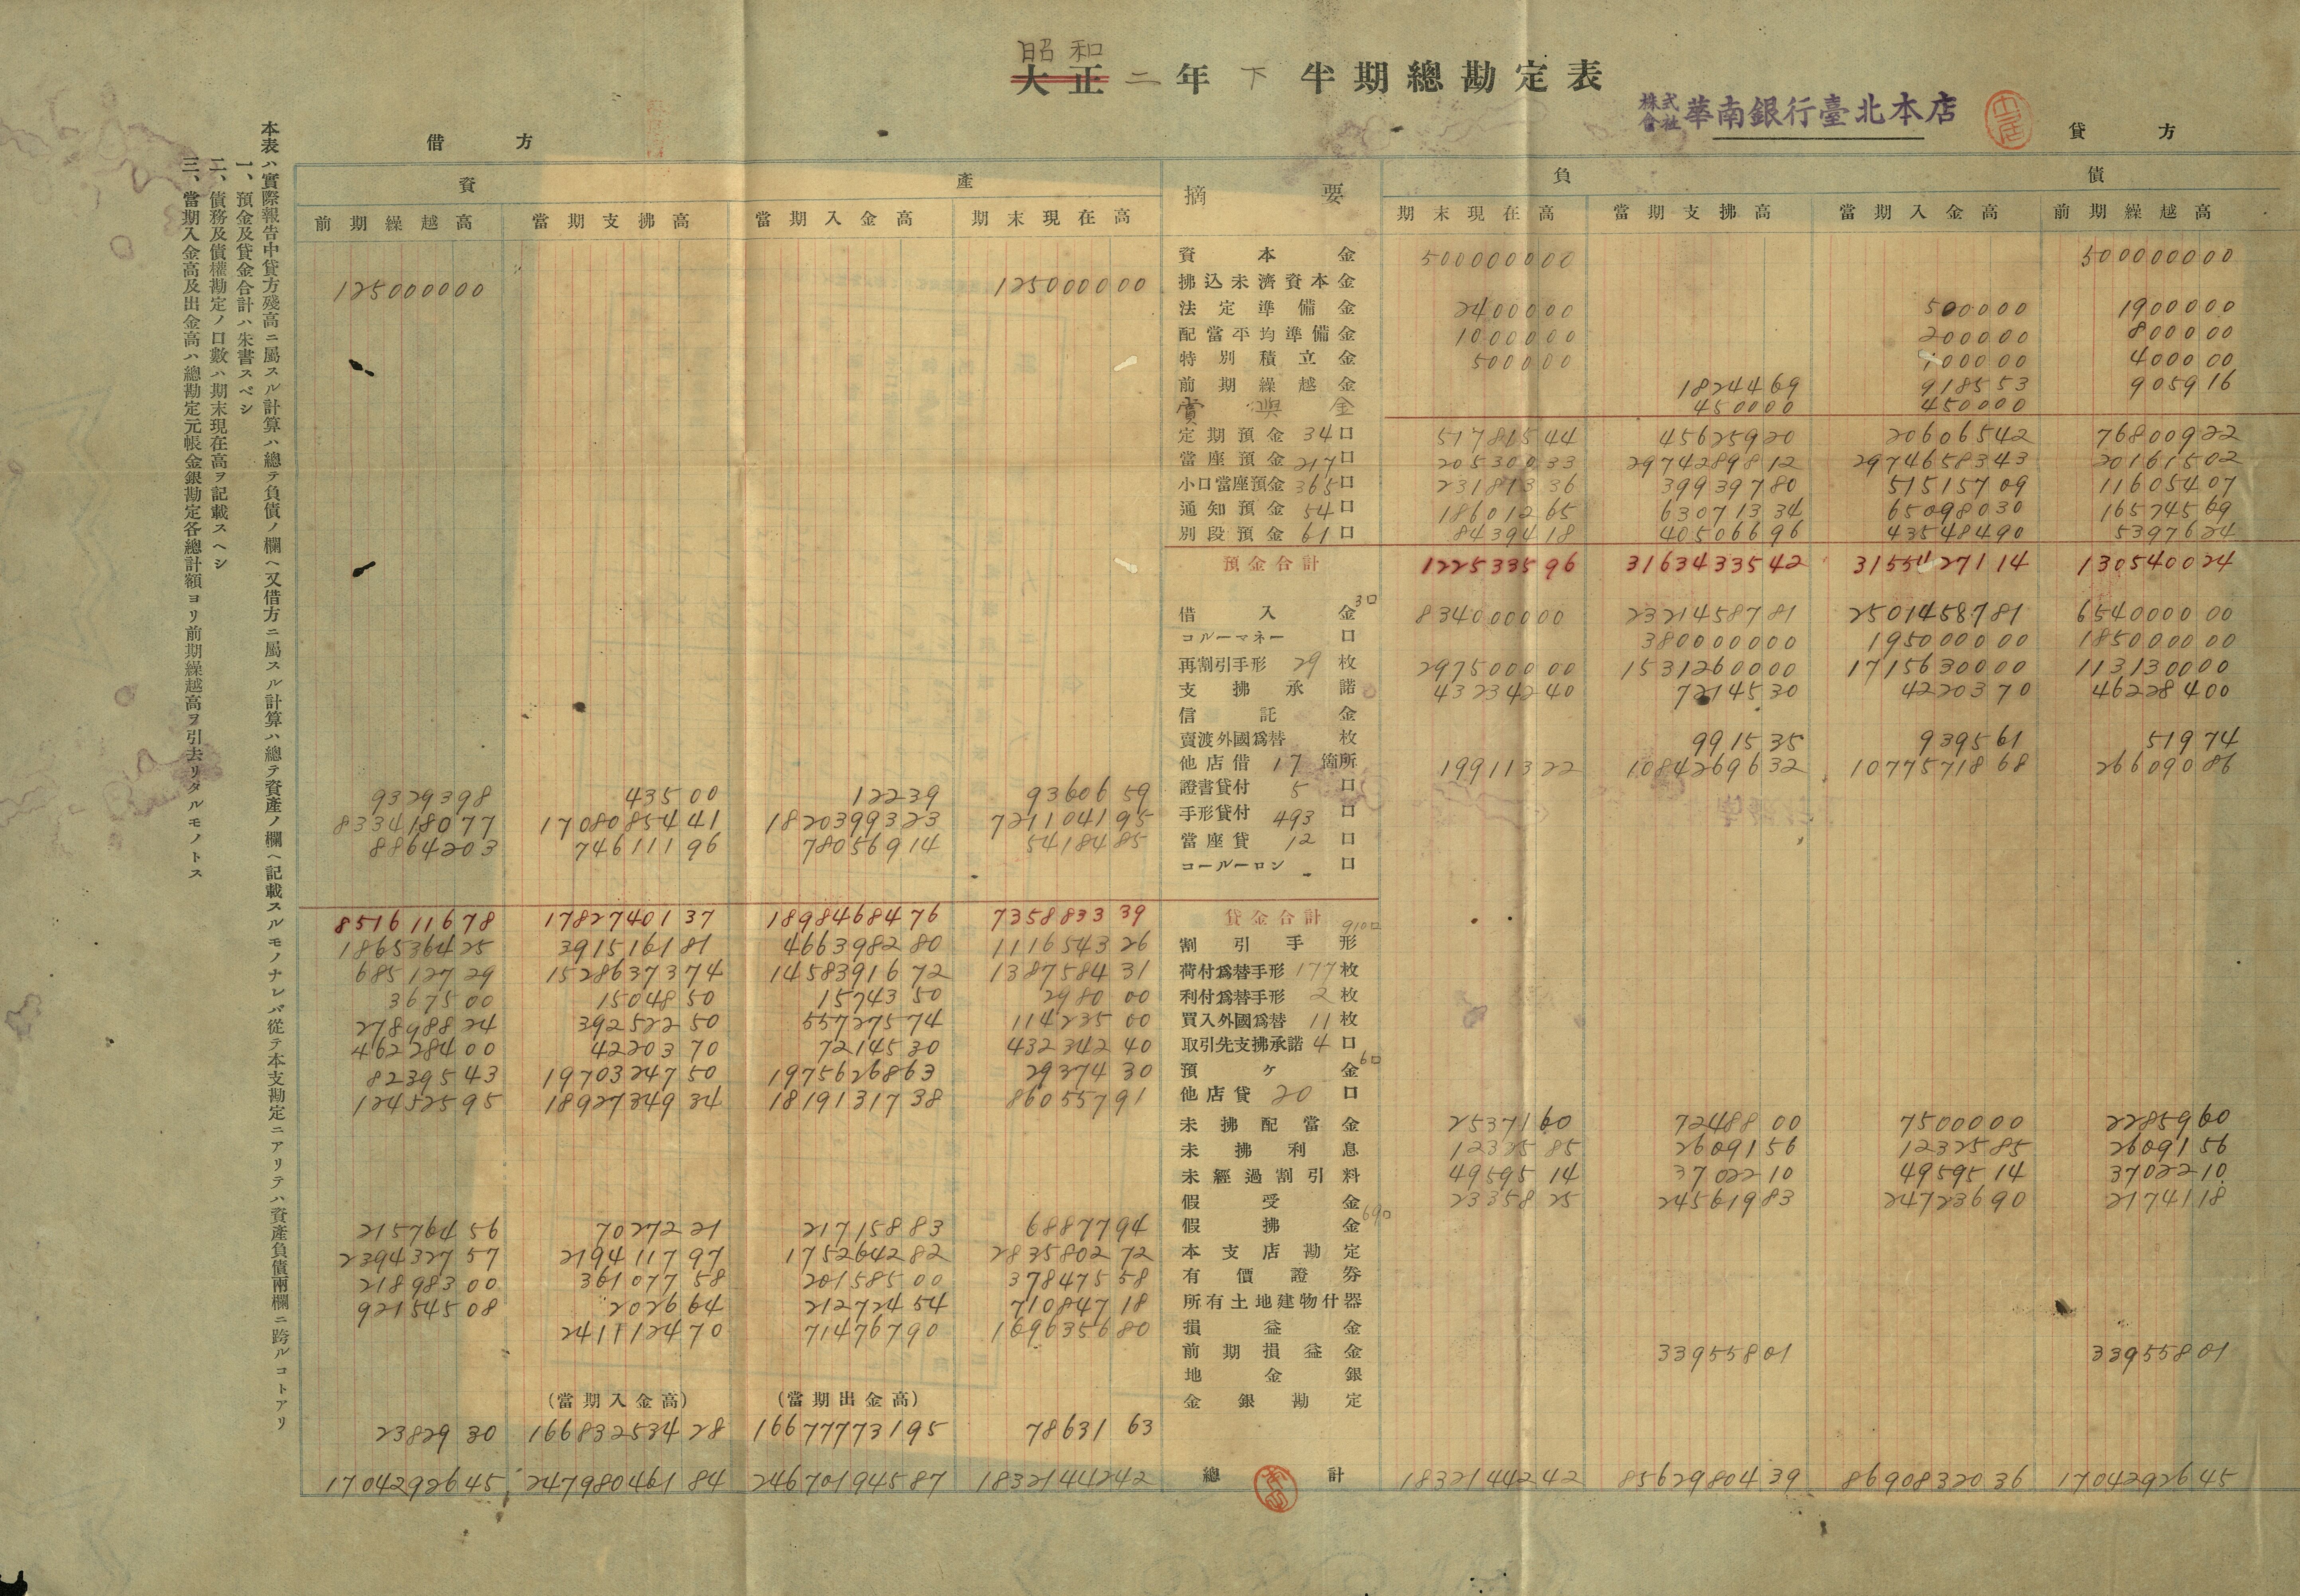 昭和
大正 二 年 下 半期總勘定表
株式會社 華南銀行臺北本店
借方 貸方
資產 摘要 負債
前期繰越高 當期支拂高 當期入金高 期末現在高 期末現在高 當期支拂高 當期入金高 前期繰越高
資本金 500000000 500000000
125000000 125000000 拂込未濟資本金
法定準備金 2400000 500000 1900000
配當平均準備金 1000000 200000 800000
特別積立金 500000 100000 400000
前期繰越金 1824469 918553 905916
賞與金 450000 450000
定期預金 34口 51781544 45625920 20606542 76800922
當座預金 217口 20530033 2974289812 2974658343 20161502
小口當座預金 365口 23181336 39939780 51515709 11605407
通知預金 54口 18601265 63071334 65098030 16574569
別段預金 61口 8439418 40506696 43548490 5397624
預金合計 122533596 3163433542 3155427114 130540024
借入金 3口 834000000 2321458781 2501458781 654000000
コールーマネー 口 380000000 195000000 185000000
再割引手形 29枚 297500000 1531260000 1715630000 113130000
支拂承諾 43234240 7214530 4220370 46228400
信託金
賣渡外國爲替 枚 991535 939561 51974
他店借 17箇所 19911322 1084269632 1077571868 26609086
9329398 43500 12239 9360659 證書貸付 5口
833418077 1708085441 1820399323 721104195 手形貸付 493口
8864203 74611196 78056914 5418485 當座貸 12口
コールーローン 口
851611678 1782740137 1898468476 735883339 貸金合計
186536425 391516181 466398280 111654326 割引手形 910口
68512729 1528637374 1458391672 138758431 荷付爲替手形 177枚
367500 1504850 1574350 298000 利付爲替手形 2枚
27898824 39252250 55727574 11423500 買入外國爲替 11枚
46228400 4220370 7214530 43234240 取引先支拂承諾 4口
8239543 1970324750 1975626863 2937430 預ケ金 6口
12452595 1892734934 1819131738 86055791 他店貸 20口
未拂配當金 2537160 7248800 7500000 2285960
未拂利息 1232585 2609156 1232585 2609156
未經過割引料 4959514 3702210 4959514 3702210
假受金 2335825 24561983 24723690 2174118
21576456 7027221 21715883 6887794 假拂金 69口
239432757 219411797 175264282 283580272 本支店勘定
21898300 36107758 20158500 37847558 有價證券
92154508 202664 21272454 71084718 所有土地建物什器
241112470 71476790 169635680 損益金
前期損益金 33955801 33955801
地金銀
(當期入金高) (當期出金高) 金銀勘定
2382930 16683253428 16677773195 7863163
1704292645 24798046184 24670194587 1832144242 總計 1832144242 8562980439 8690832036 1704292645
本表ハ實際報告中貸方殘高ニ屬スル計算ハ總テ負債ノ欄ヘ又借方ニ屬スル計算ハ總テ資產ノ欄ヘ記載スルモノナレバ從テ本支勘定ニアリテハ資產負債兩欄ニ跨ルコトアリ
一、預金及貸金合計ハ朱書スベシ
二、債務及債權勘定ノ口數ハ期末現在高ヲ記載スヘシ
三、當期入金高及出金高ハ總勘定元帳金銀勘定各總計額ヨリ前期繰越高ヲ引去リタルモノトス